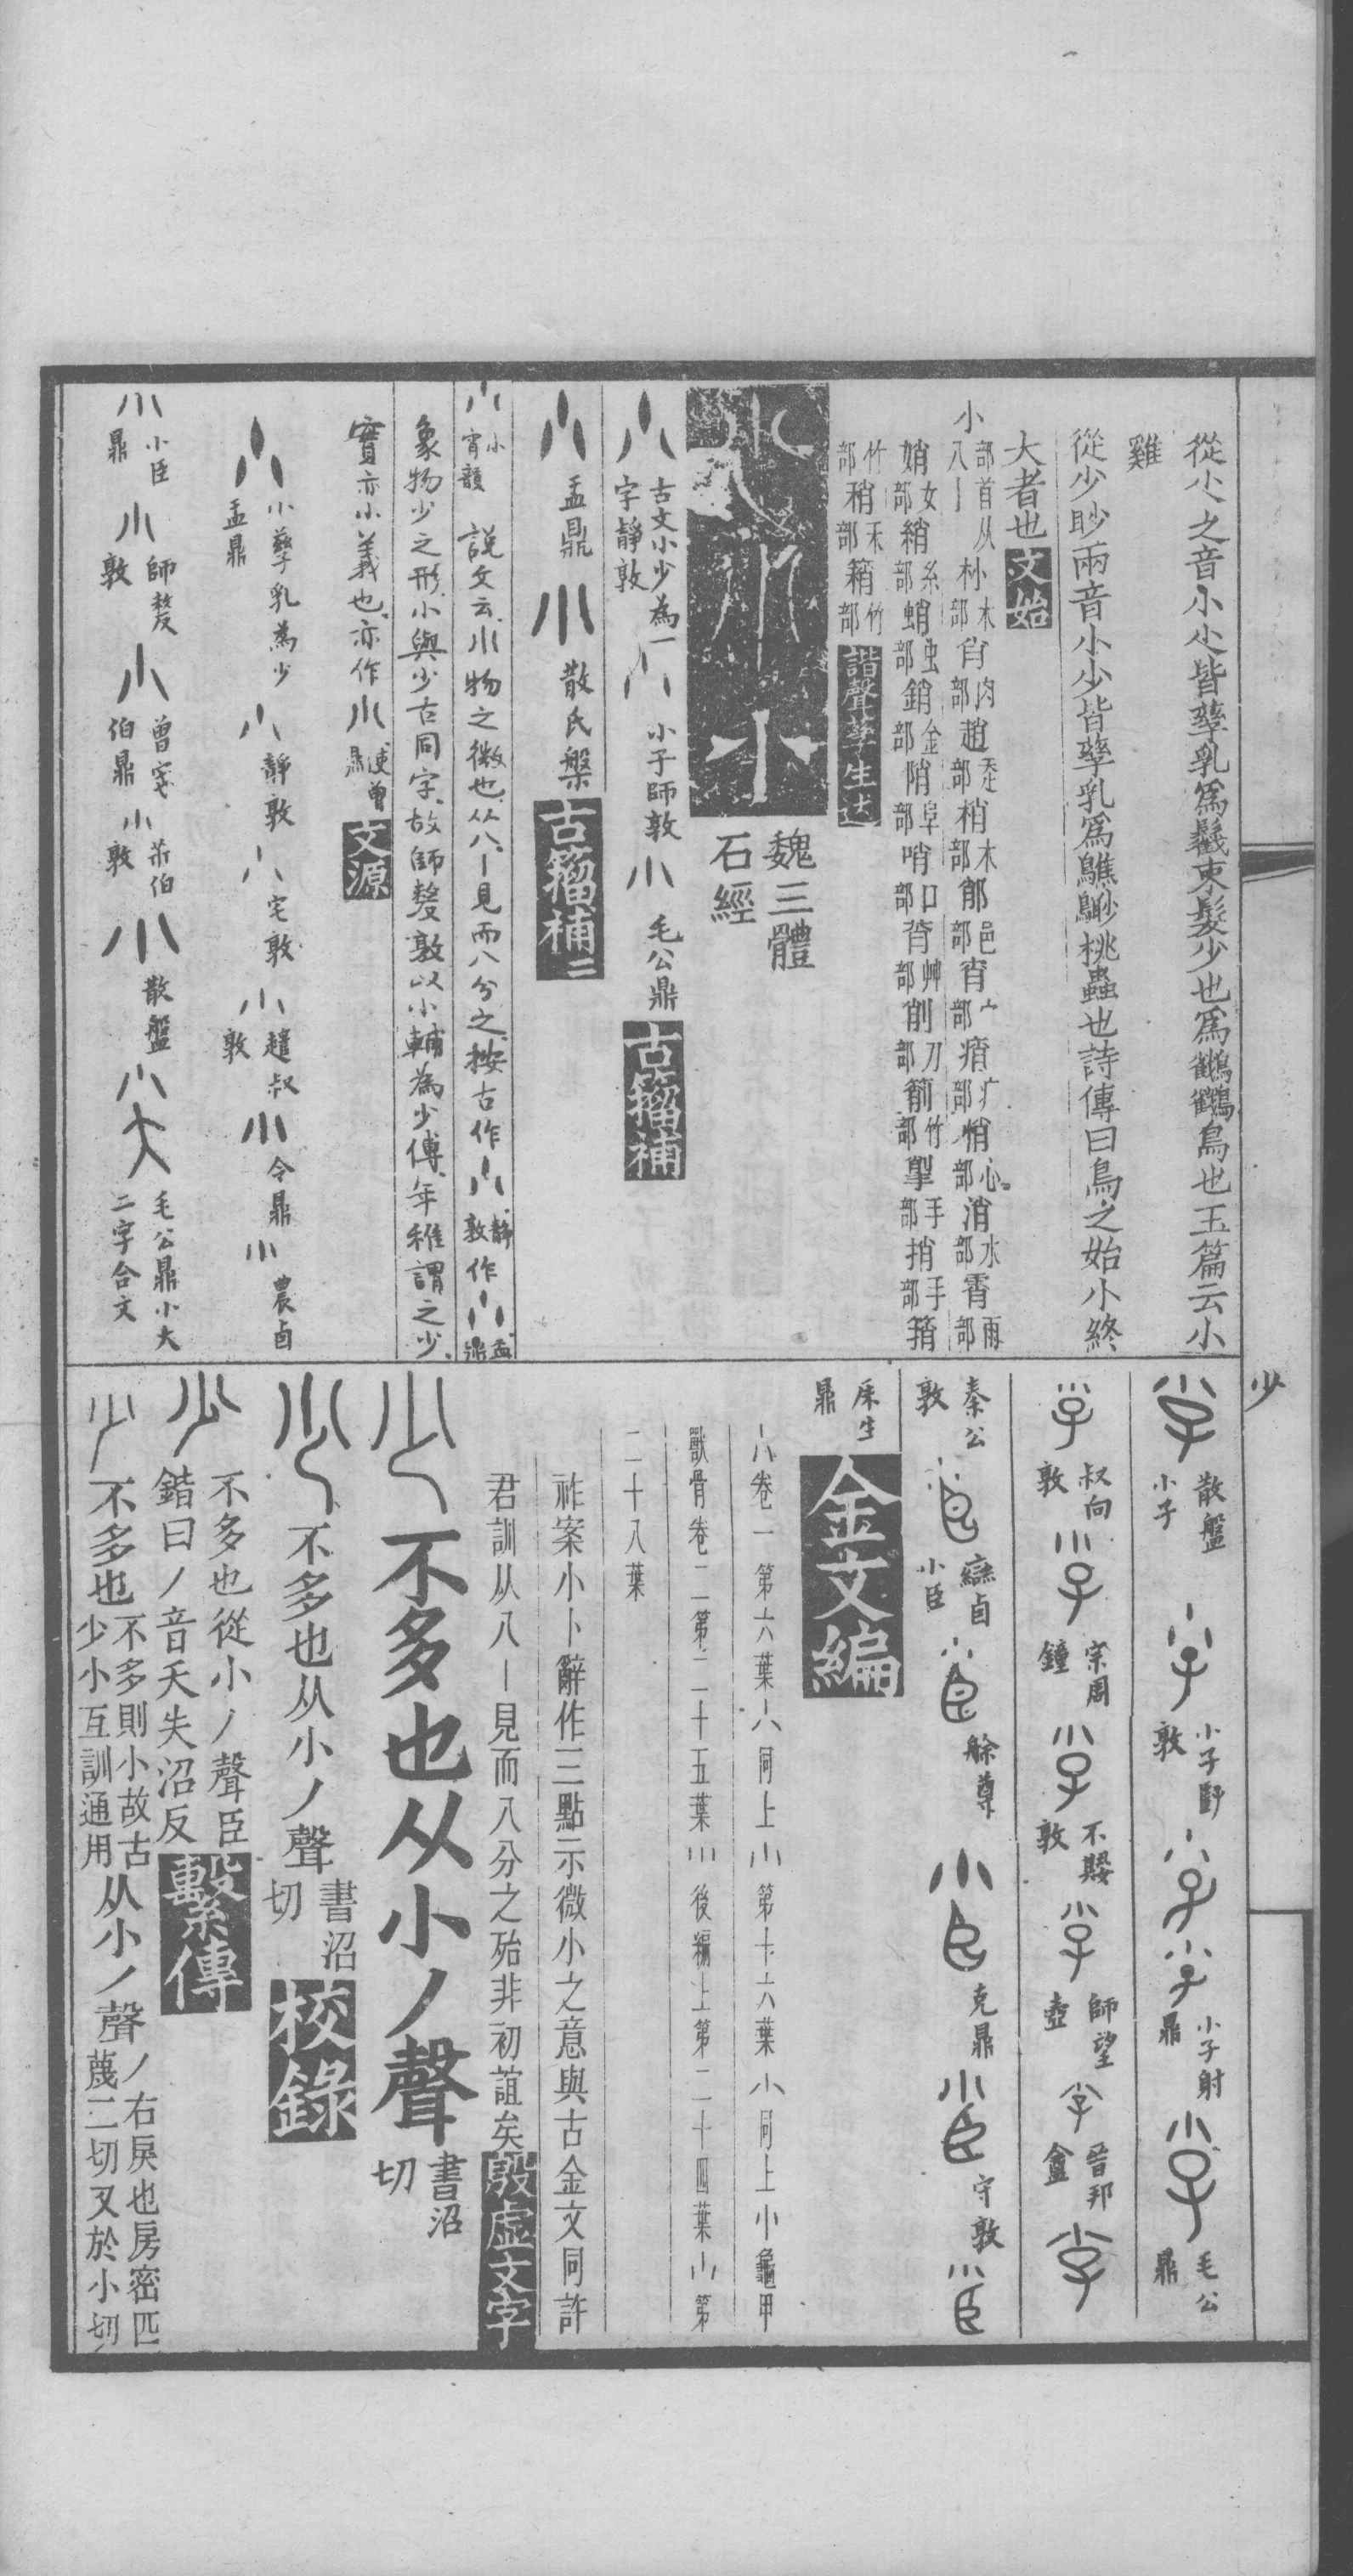 從尐之音小尐皆孳乳爲𩭝束髮少也爲鸛鸛鳥也玉篇云小
雞
從少眇兩音小少皆孳乳爲鷦𪃐桃蟲也詩傳曰鳥之始小終
大者也 文始
小部首从八丨 朴木部 肖肉部 趙走部 梢木部 郎邑部 宵宀部 痟疒部 悄心部 消水部 霄雨部
娋女部 綃糸部 蛸虫部 銷金部 陗阜部 哨口部 莦艸部 削刀部 箾竹部 揱手部 捎手部 箵
竹部 稍禾部 䈾竹部 諧聲孳生述
魏三體石經
古文小少為一字靜敦 小子師敦 毛公鼎 古籀補
盂鼎 散氏槃 古籀補二
小宵韻 說文云小物之微也从八丨見而八分之按古作靜敦作盂鼎
象物少之形小與少古同字故師嫠敦以小輔為少傅年稚謂之少
實亦小義也亦作 文源
小孳乳為少盂鼎 靜敦 宅敦 趞叔敦 令鼎 農卣
小臣鼎 師嫠敦 曾伯鼎 散盤 毛公鼎小大二字合文
少
散盤小子 小子敦 小子射鼎 毛公鼎
叔向敦 宗周鐘 不𡢁敦 師望壺 晉邦盦
秦公敦 䜌卣小臣 艅尊 克鼎 守敦
鼎 金文編
卷一第六葉 同上 第十六葉 同上 龜甲
獸骨卷二第二十五葉 後編上第二十四葉 第
二十八葉
祚案小卜辭作三點示微小之意與古金文同許
君訓从八丨見而八分之殆非初誼矣 殷虛文字
不多也从小丿聲 書沼切
不多也从小丿聲 書沼切 校錄
不多也從小丿聲臣鍇曰丿音夭失沼反 繫傳
不多也 不多則小故古少小互訓通用 从小丿聲 丿右戾也房密匹蔑二切又於小切